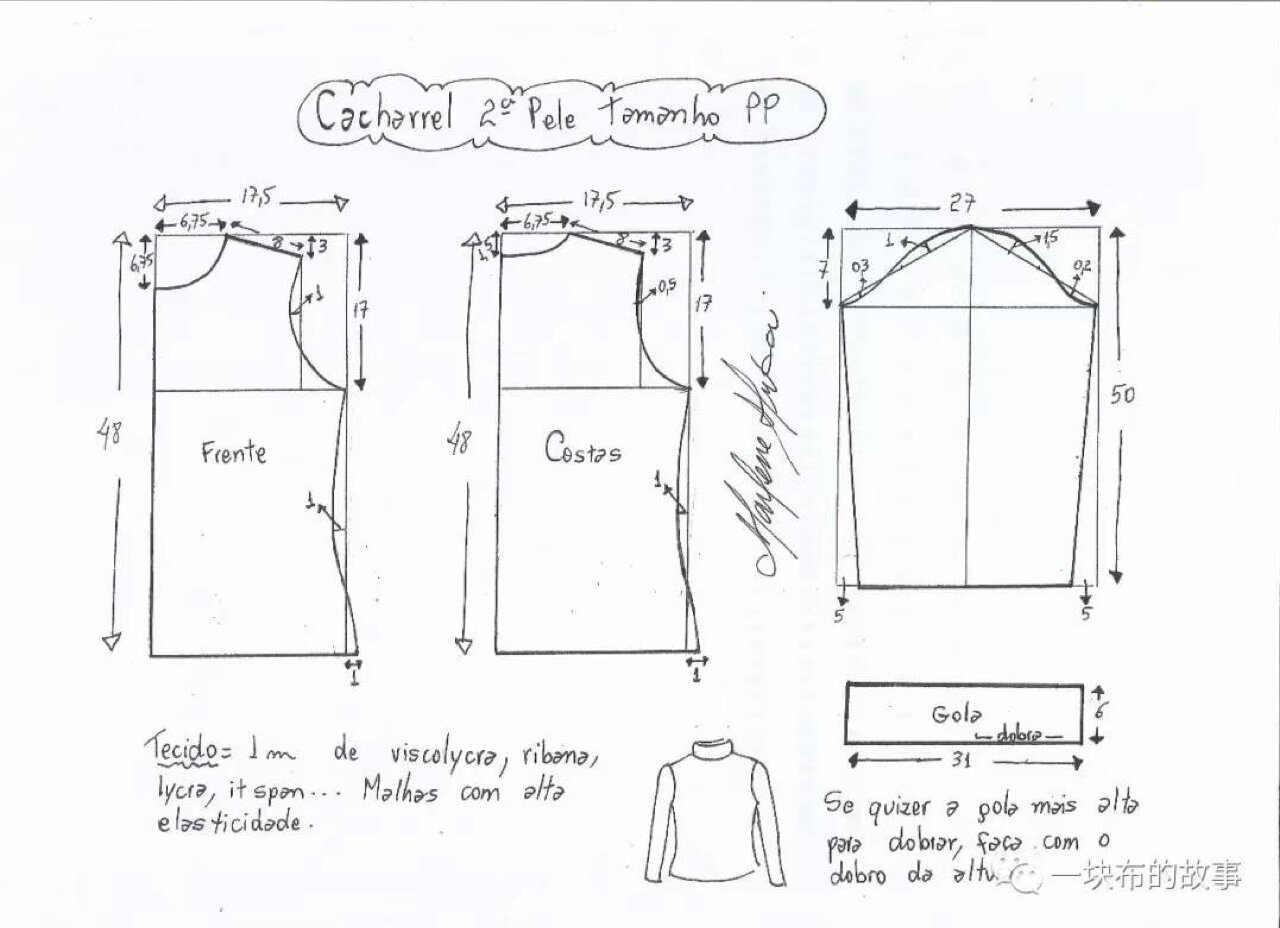 Cacharrel 2ª Pele Tamanho PP
17,5
6,75
8
3
6,75
1
17
48
Frente
1
1
17,5
6,75
8
3
1,5
0,5
17
48
Costas
1
1
27
7
0,3
1
1,5
0,2
50
5
5
Gola
dobra
6
31
Tecido = 1 m de viscolycra, ribana,
lycra, it span... Malhas com alta
elasticidade.
Se quizer a gola mais alta
para dobrar, faça com o
dobro da
一块布的故事